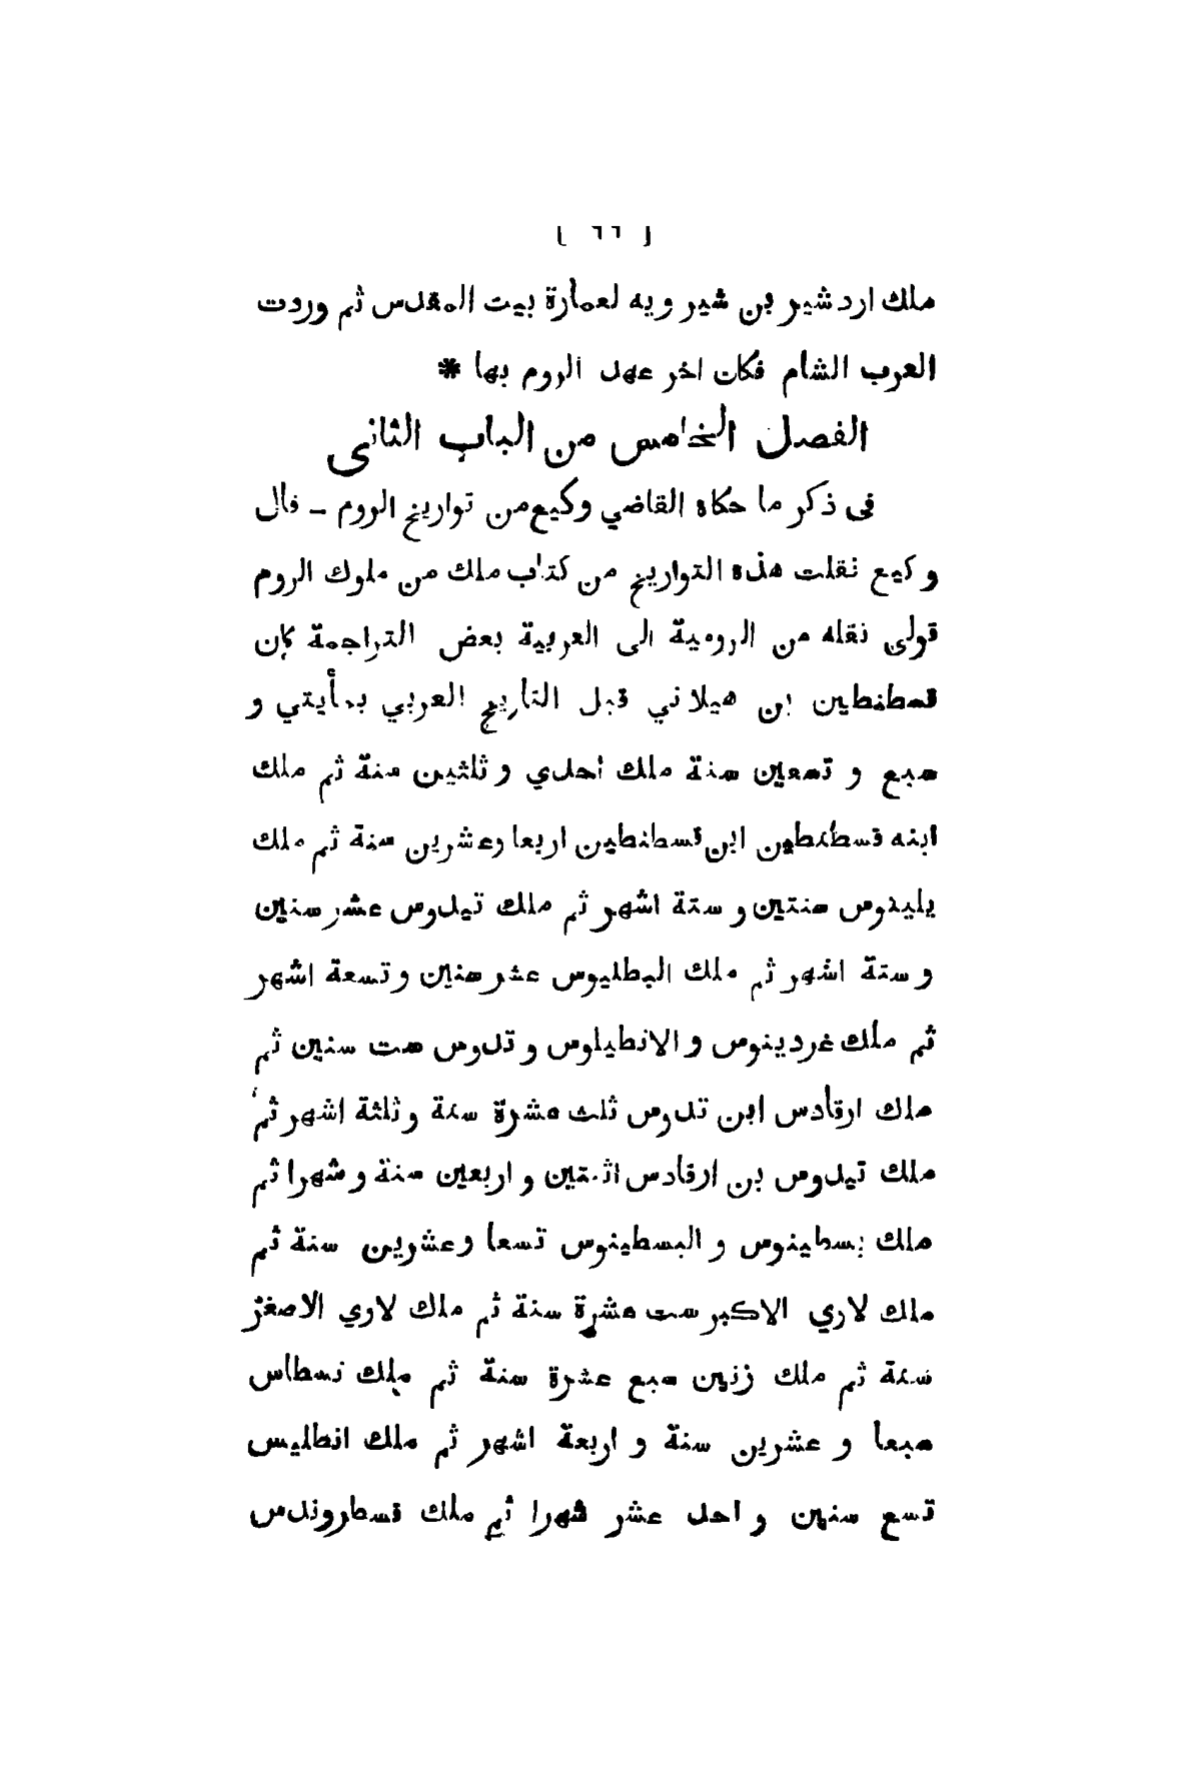 [ ٦٦ ]
ملك اردشير بن شيرويه لعمارة بيت المقدس ثم وردت
العرب الشام فكان اخر عهد الروم بها *
الفصل الخامس من الباب الثاني
في ذكر ما حكاه القاضي وكيع من تواريخ الروم - قال
وكيع نقلت هذه التواريخ من كتاب ملك من ملوك الروم
تولى نقله من الرومية الى العربية بعض التراجمة كان
قسطنطين بن هيلاني قبل التاريخ العربي بمأيتي و
سبع و تسعين سنة ملك احدي و ثلثين سنة ثم ملك
ابنه قسطنطين ابن قسطنطين اربعا وعشرين سنة ثم ملك
يلينوس سنتين و ستة اشهر ثم ملك تيدوس عشر سنين
و ستة اشهر ثم ملك البطليوس عشر سنين و تسعة اشهر
ثم ملك غردينوس و الانطيلوس و تدوس ست سنين ثم
ملك ارقادس ابن تدوس ثلث عشرة سنة و ثلثة اشهر ثم
ملك تيدوس بن ارقادس اثنتين و اربعين سنة و شهرا ثم
ملك بسطينوس و البسطينوس تسعا وعشرين سنة ثم
ملك لاري الاكبر ست عشرة سنة ثم ملك لاري الاصغر
سنة ثم ملك زنين سبع عشرة سنة ثم ملك نسطاس
سبعا و عشرين سنة و اربعة اشهر ثم ملك انطليس
تسع سنين و احد عشر شهرا ثم ملك قسطروندس